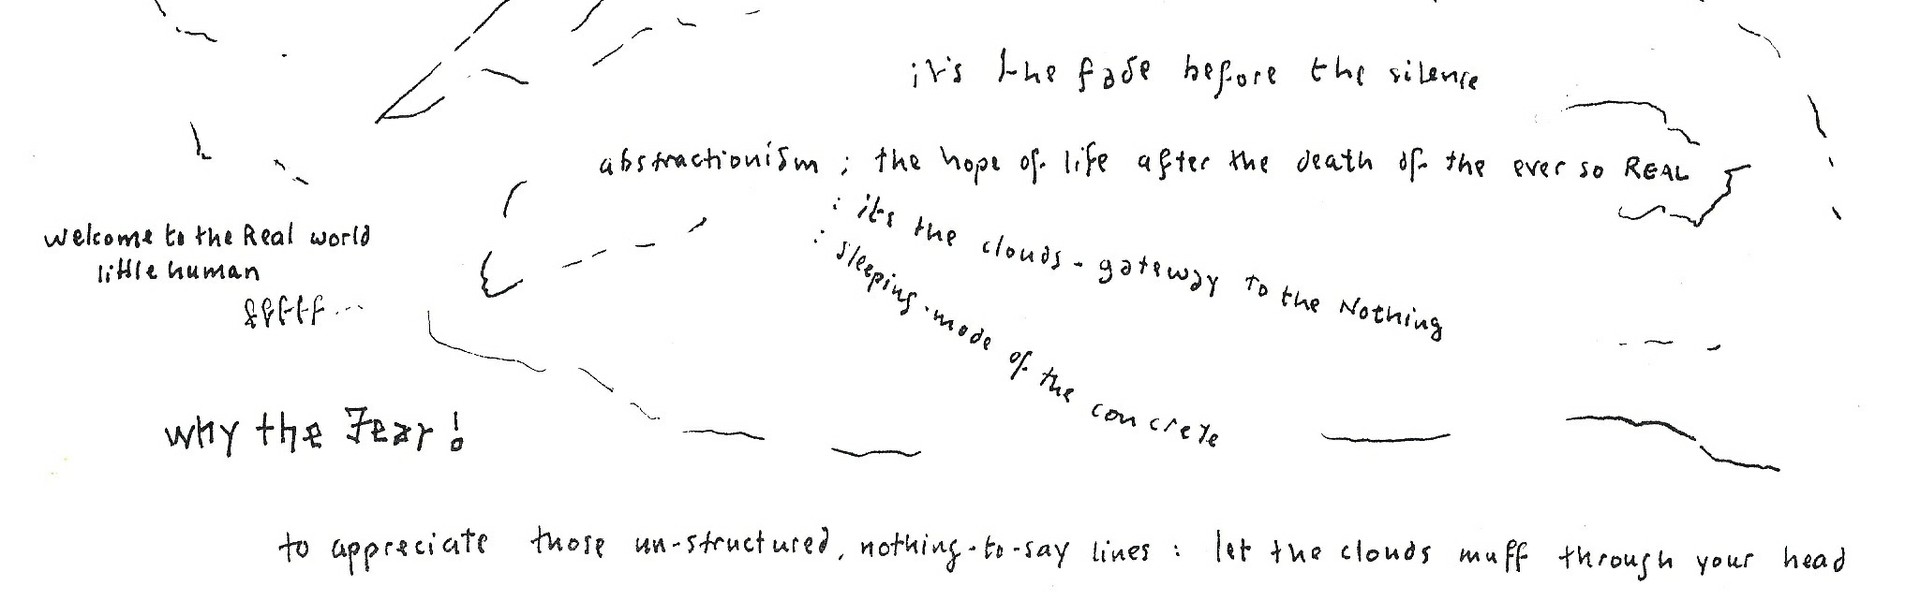 it's the fade before the silence
abstractionism ; the hope of life after the death of the ever so REAL
: it's the clouds - gateway to the Nothing
: sleeping-mode of the concrete
welcome to the Real world
little human
fffff...
why the Fear !
to appreciate those un-structured, nothing-to-say lines : let the clouds muff through your head